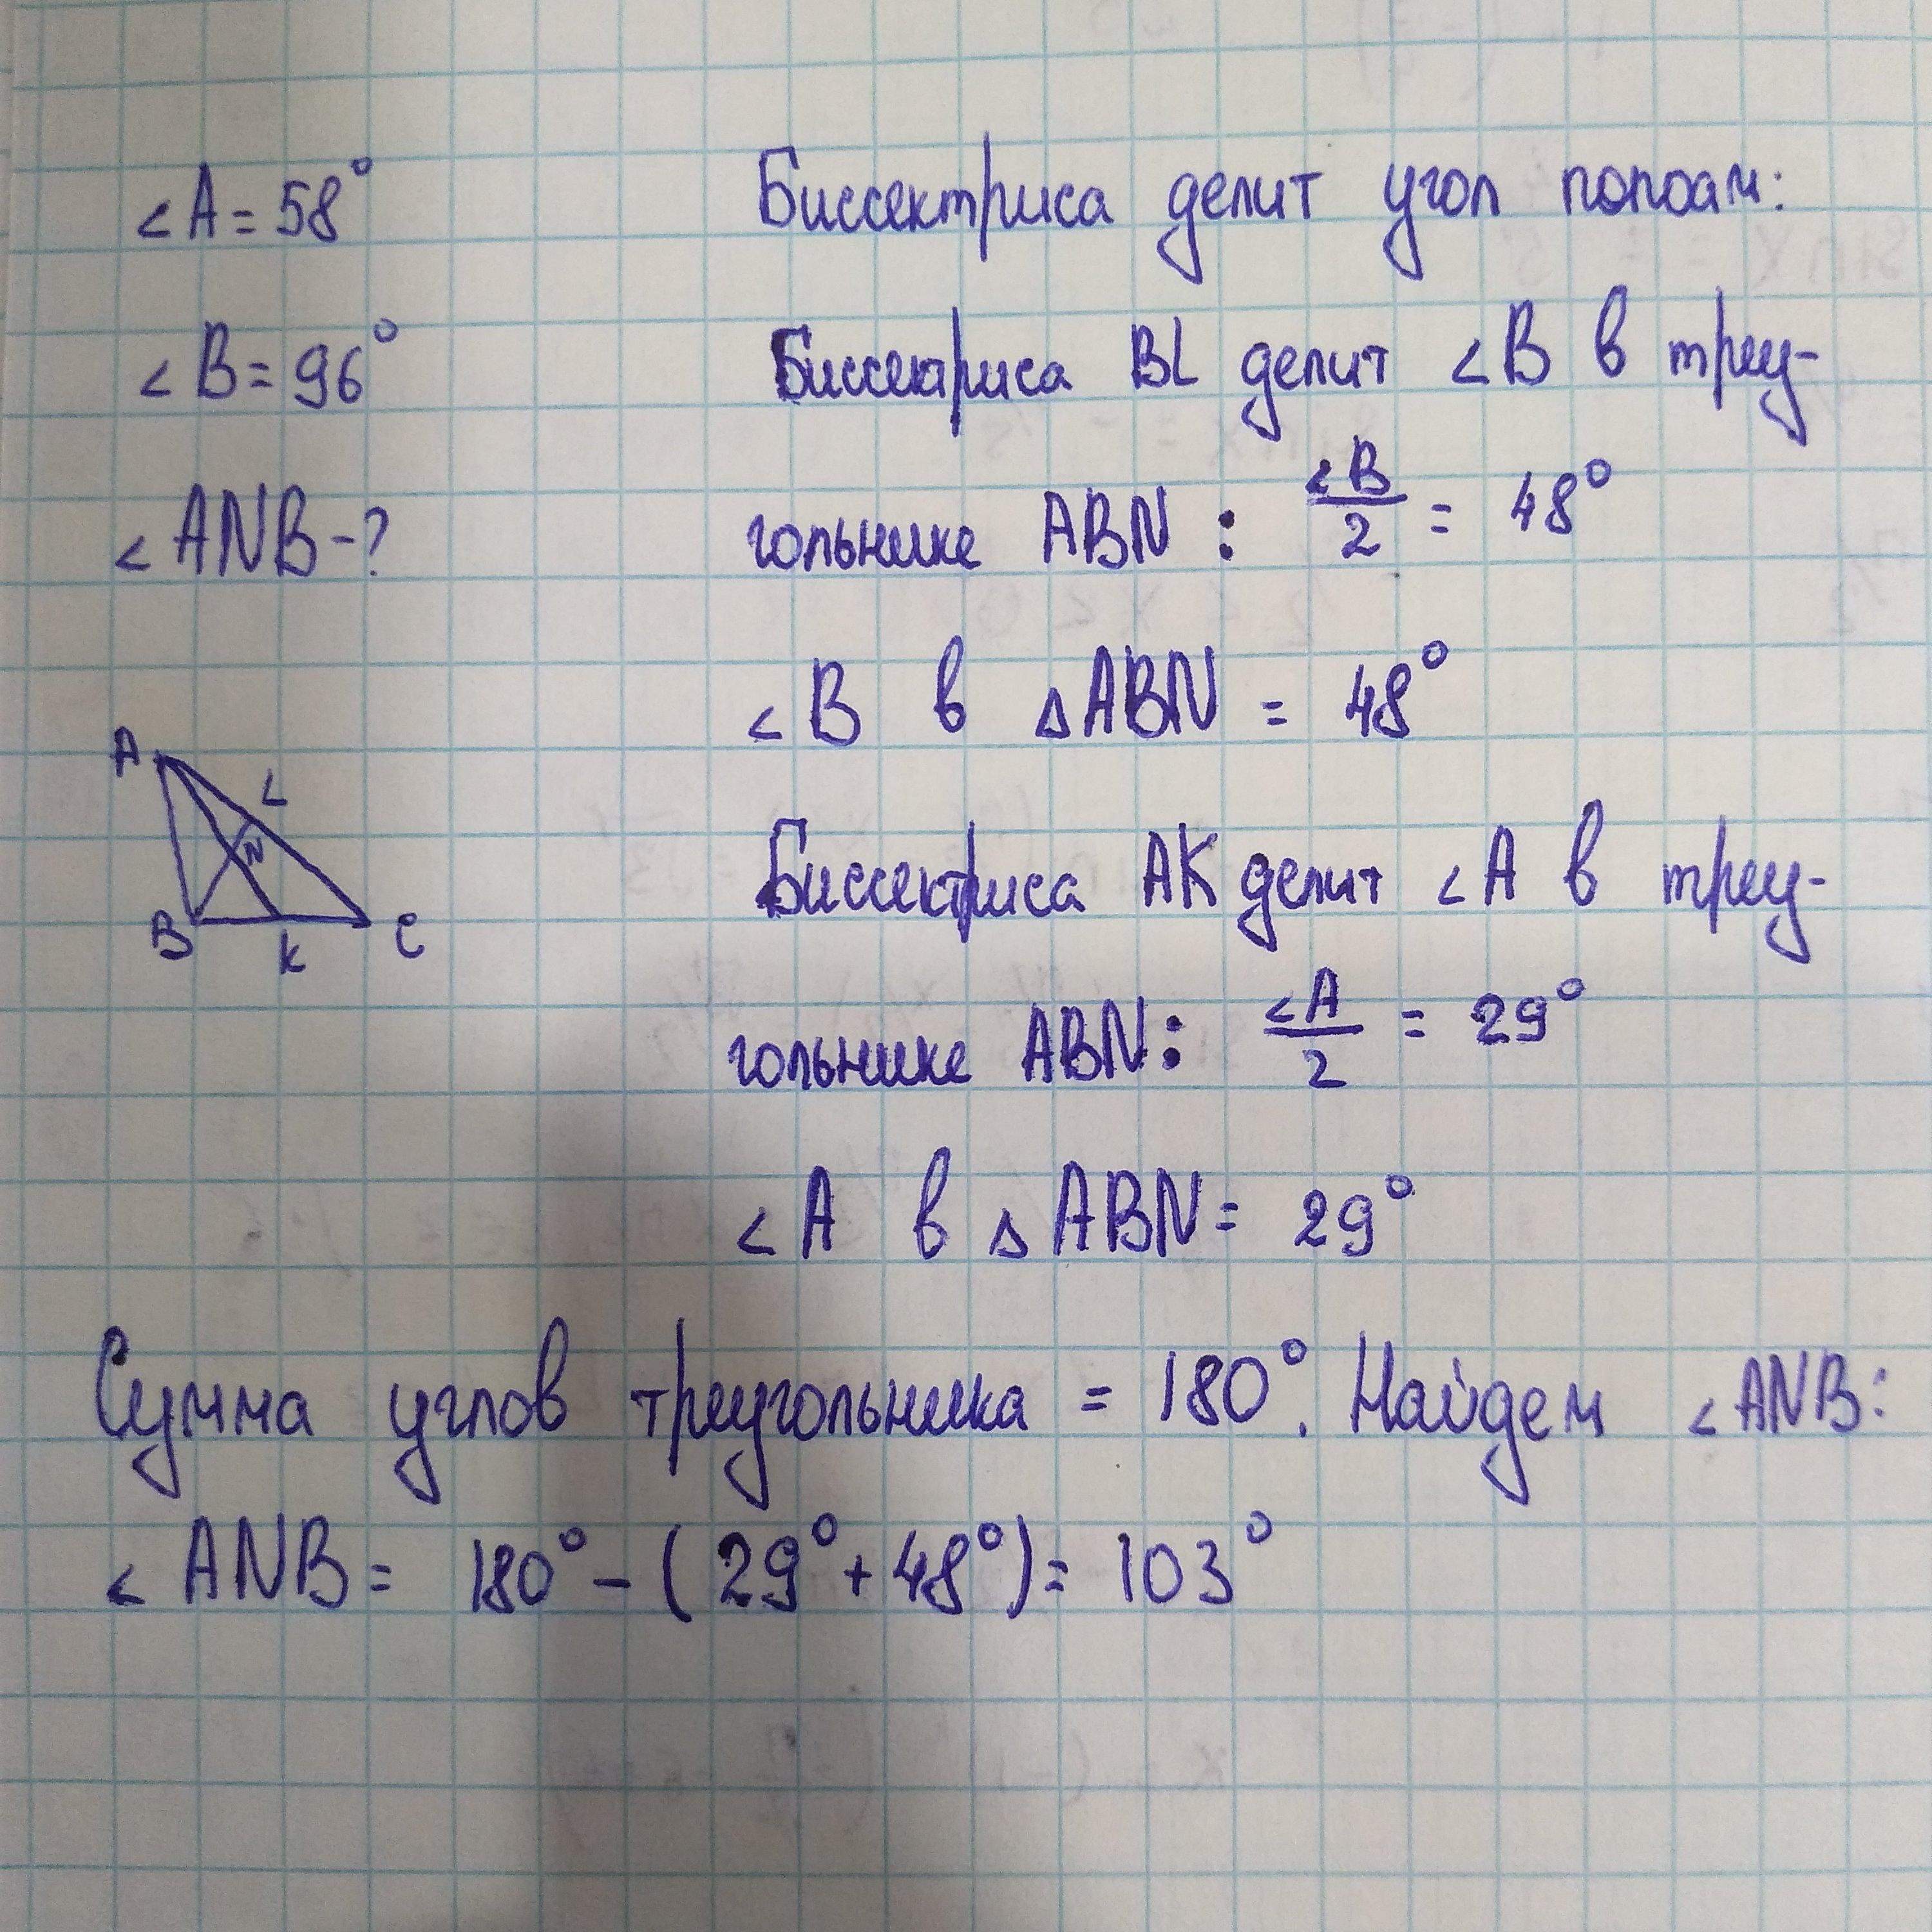 ∠A = 58°
∠B = 96°
∠ANB - ?
A
L
N
B
K
C
Биссектриса делит угол попоам:
Биссектриса BL делит ∠B в треу-
гольнике ABN : ∠B/2 = 48°
∠B в △ABN = 48°
Биссектриса AK делит ∠A в треу-
гольнике ABN : ∠A/2 = 29°
∠A в △ABN = 29°
Сумма углов треугольника = 180°. Найдем ∠ANB:
∠ANB = 180° - (29° + 48°) = 103°